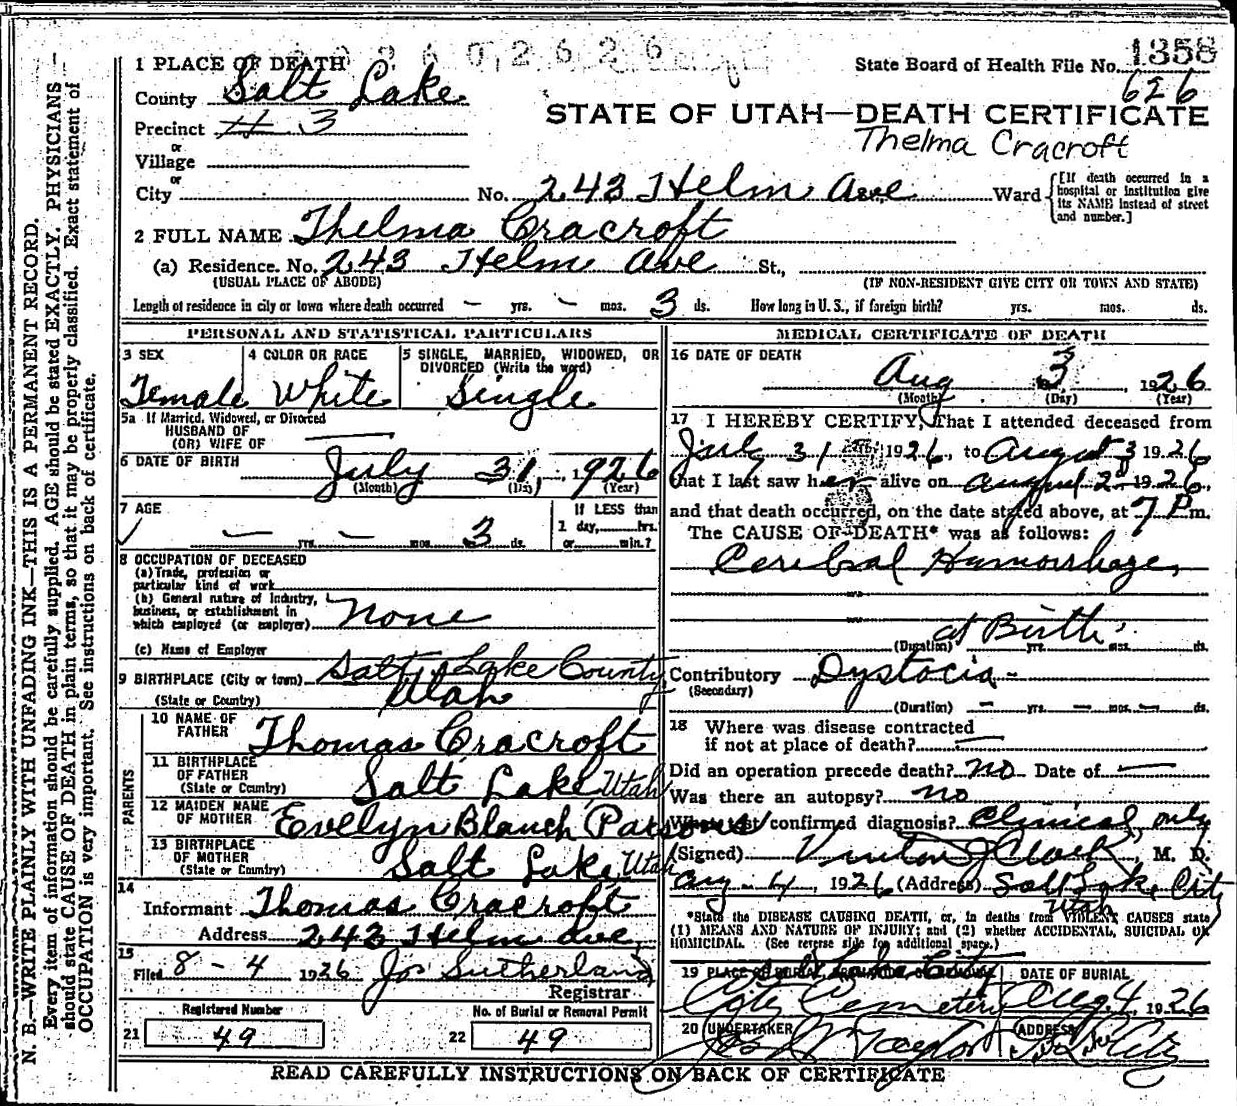 1358
1 PLACE OF DEATH
State Board of Health File No. 626
County Salt Lake
STATE OF UTAH—DEATH CERTIFICATE
Precinct # 3
Thelma Cracroft
or
Village
or
City No. 243 Helm Ave Ward
[If death occurred in a hospital or institution give its NAME instead of street and number.]
2 FULL NAME Thelma Cracroft
(a) Residence. No. 243 Helm Ave St.,
(USUAL PLACE OF ABODE) (IF NON-RESIDENT GIVE CITY OR TOWN AND STATE)
Length of residence in city or town where death occurred — yrs. — mos. 3 ds. How long in U. S., if foreign birth? yrs. mos. ds.
PERSONAL AND STATISTICAL PARTICULARS
3 SEX 4 COLOR OR RACE 5 SINGLE, MARRIED, WIDOWED, OR DIVORCED (Write the word)
Female White Single
5a If Married, Widowed, or Divorced
HUSBAND OF
(OR) WIFE OF —
6 DATE OF BIRTH July 31, 1926
(Month) (Day) (Year)
7 AGE If LESS than
— yrs. — mos. 3 ds. 1 day, hrs.
or min.?
8 OCCUPATION OF DECEASED
(a) Trade, profession or
particular kind of work
(b) General nature of industry,
business, or establishment in
which employed (or employer) None
(c) Name of Employer
9 BIRTHPLACE (City or town) Salt Lake County
(State or Country) Utah
PARENTS
10 NAME OF
FATHER Thomas Cracroft
11 BIRTHPLACE
OF FATHER
(State or Country) Salt Lake Utah
12 MAIDEN NAME
OF MOTHER Evelyn Blanch Parsons
13 BIRTHPLACE
OF MOTHER
(State or Country) Salt Lake Utah
14
Informant Thomas Cracroft
Address 243 Helm ave
15
Filed 8 - 4 1926 Jos Sutherland
Registrar
Registered Number No. of Burial or Removal Permit
21 49 22 49
MEDICAL CERTIFICATE OF DEATH
16 DATE OF DEATH
Aug 3, 1926
(Month) (Day) (Year)
17 I HEREBY CERTIFY, That I attended deceased from
July 31 1926, to August 3 1926
that I last saw her alive on August 2d 1926,
and that death occurred, on the date stated above, at 7 P m.
The CAUSE OF DEATH* was as follows:
Cerebral Hemorrhage,
at Birth.
(Duration) yrs. mos. ds.
Contributory Dystocia -
(Secondary)
(Duration) — yrs. — mos. — ds.
18 Where was disease contracted
if not at place of death? —
Did an operation precede death? no Date of —
Was there an autopsy? no
What test confirmed diagnosis? Clinical only
(Signed) M. D.
Aug - 4, 1926 (Address) Salt Lake City
Utah
*State the DISEASE CAUSING DEATH, or, in deaths from VIOLENT CAUSES state
(1) MEANS AND NATURE OF INJURY; and (2) whether ACCIDENTAL, SUICIDAL OR
HOMICIDAL. (See reverse side for additional space.)
19 PLACE OF BURIAL, DATE OF BURIAL
Salt Lake City
City Cemetery Aug 4, 1926
20 UNDERTAKER ADDRESS
Taylor
READ CAREFULLY INSTRUCTIONS ON BACK OF CERTIFICATE
N. B.—WRITE PLAINLY WITH UNFADING INK—THIS IS A PERMANENT RECORD.
Every item of information should be carefully supplied. AGE should be stated EXACTLY. PHYSICIANS
should state CAUSE OF DEATH in plain terms, so that it may be properly classified. Exact statement of
OCCUPATION is very important. See instructions on back of certificate.